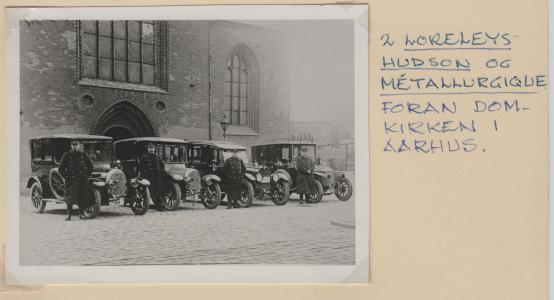 2 LORELEYS
HUDSON OG
MÉTALLURGIQUE
FORAN DOM-
KIRKEN I
AARHUS.